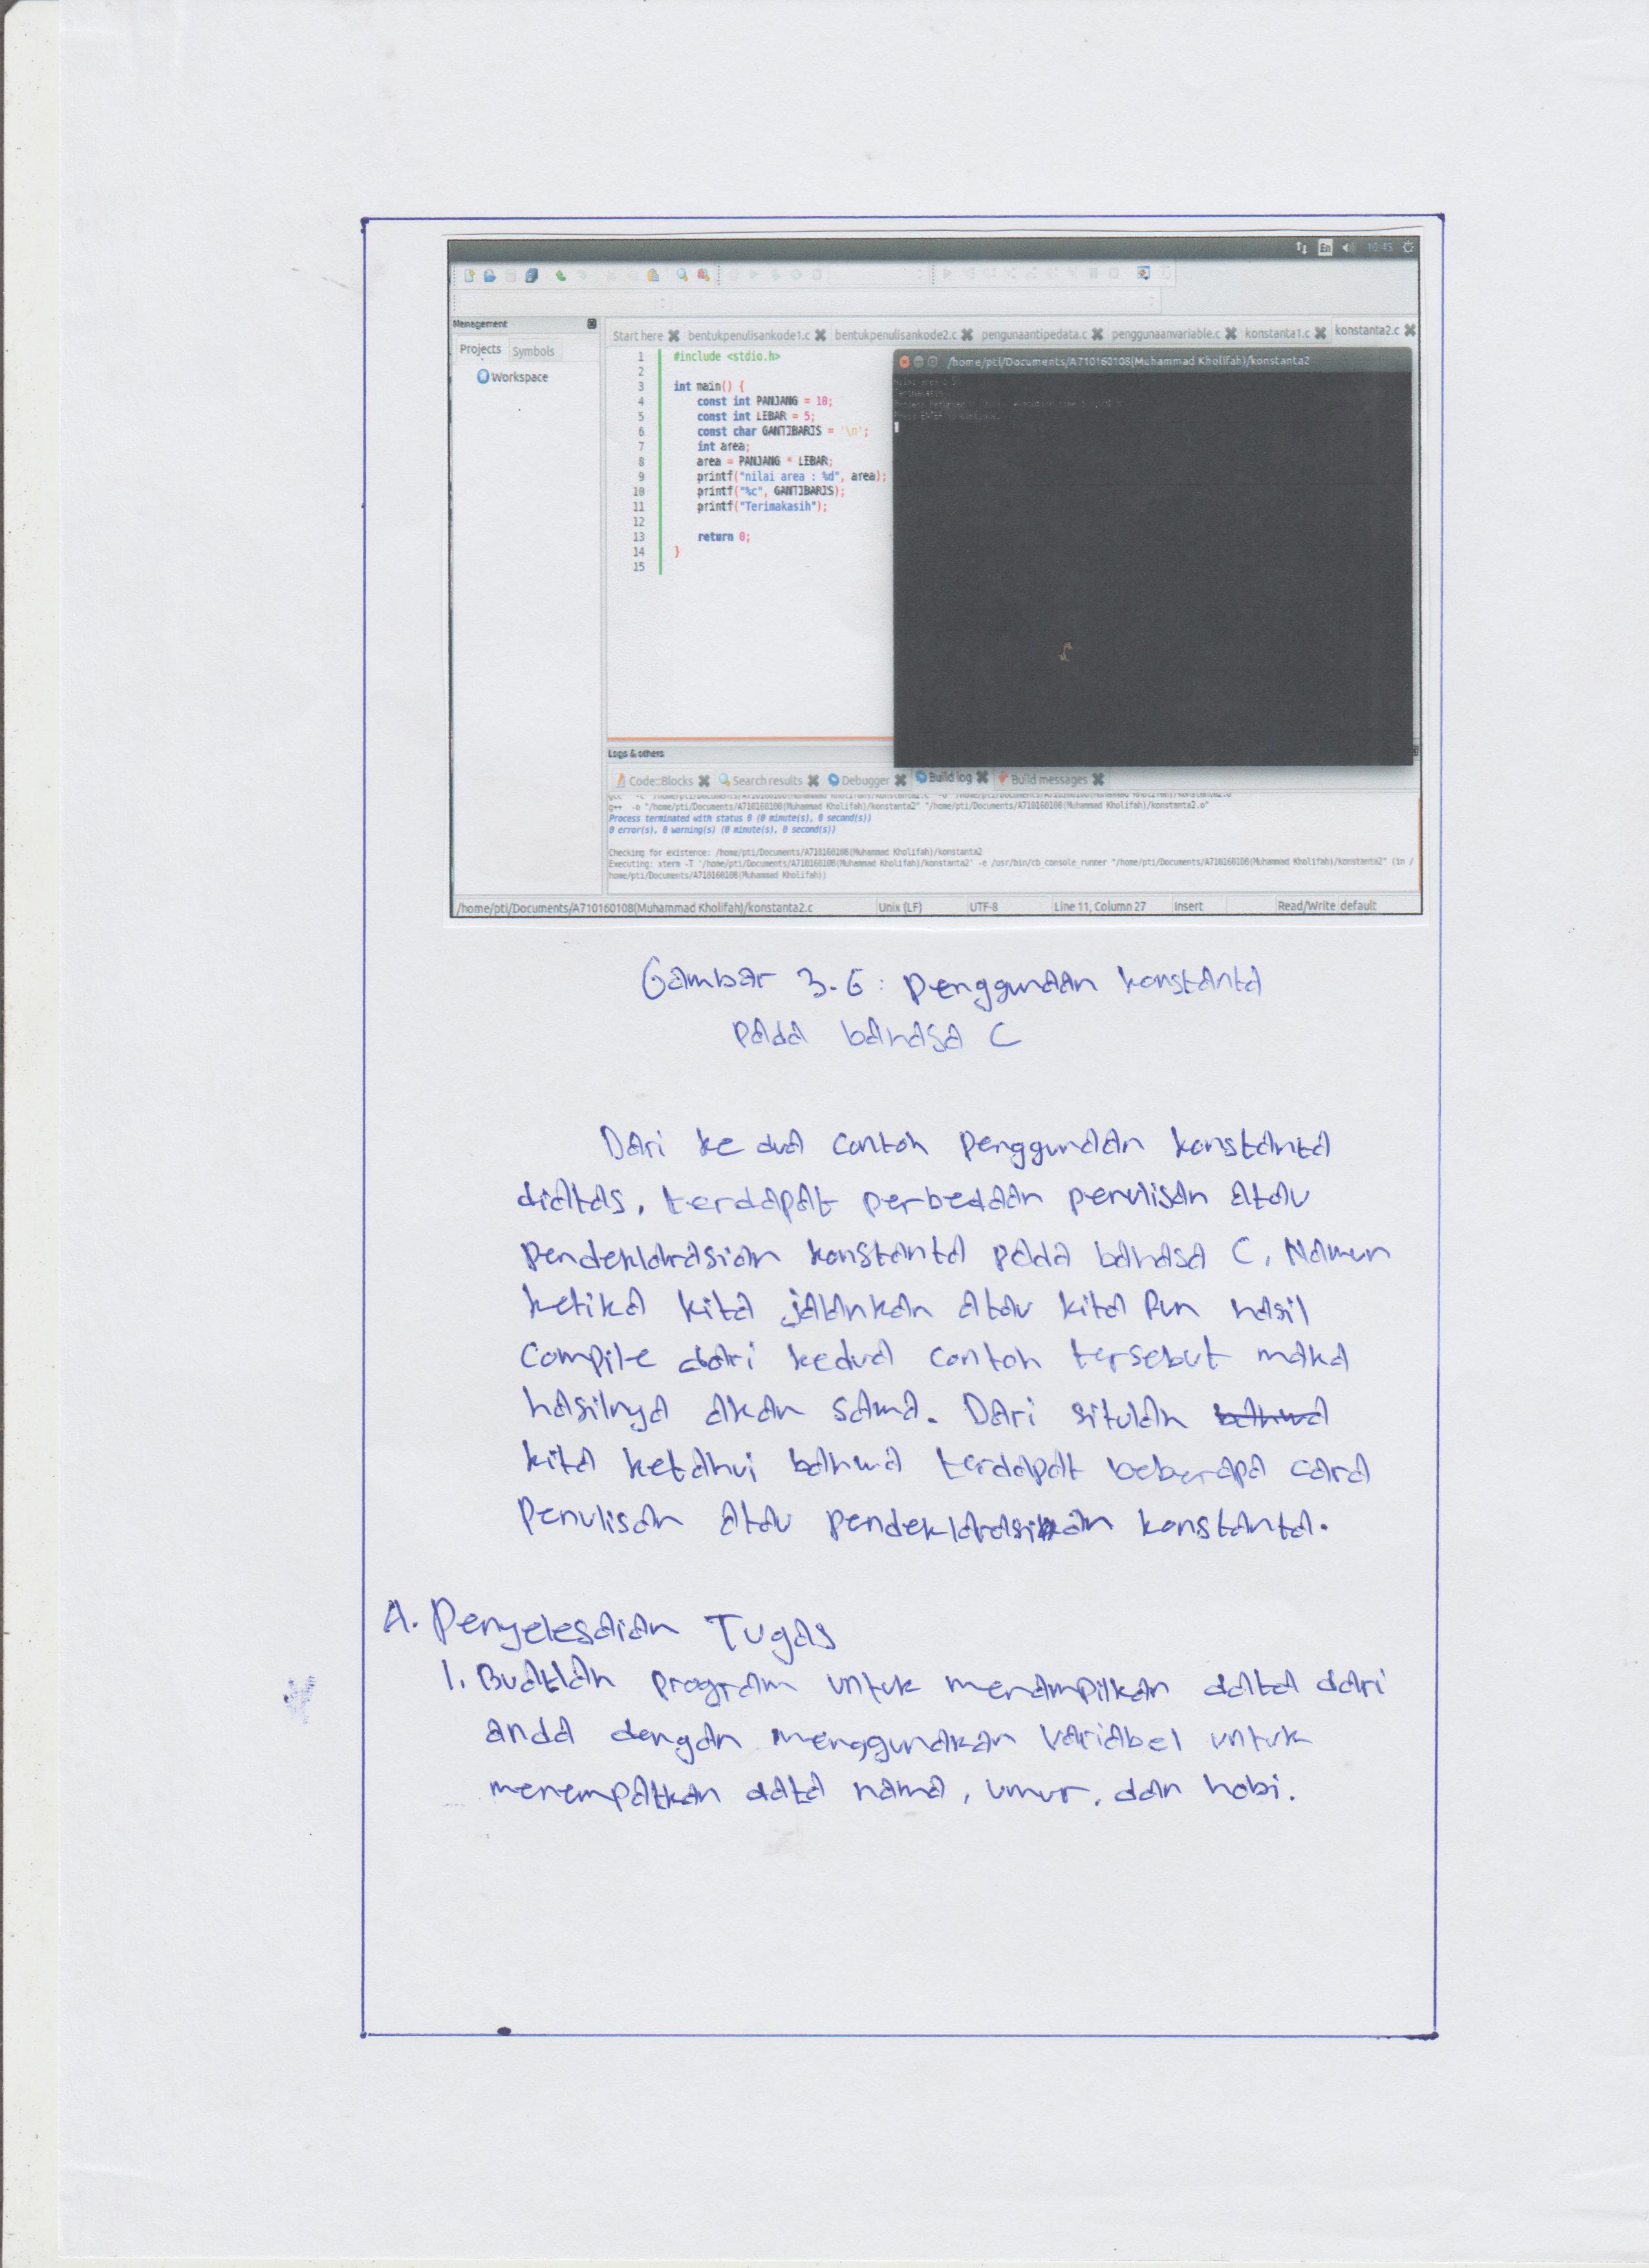 En 10:45
Management
Projects Symbols
Workspace
Start here bentukpenulisankode1.c bentukpenulisankode2.c pengunaantipedata.c penggunaanvariable.c konstanta1.c konstanta2.c
/home/pti/Documents/A710160108(Muhammad Kholifah)/konstanta2
1 #include <stdio.h>
2
3 int main() {
4 const int PANJANG = 10;
5 const int LEBAR = 5;
6 const char GANTIBARIS = '\n';
7 int area;
8 area = PANJANG * LEBAR;
9 printf("nilai area : %d", area);
10 printf("%c", GANTIBARIS);
11 printf("Terimakasih");
12
13 return 0;
14 }
15
Logs & others
Code::Blocks Search results Debugger Build log Build messages
g++ -o "/home/pti/Documents/A710160108(Muhammad Kholifah)/konstanta2" "/home/pti/Documents/A710160108(Muhammad Kholifah)/konstanta2.o"
Process terminated with status 0 (0 minute(s), 0 second(s))
0 error(s), 0 warning(s) (0 minute(s), 0 second(s))
Checking for existence: /home/pti/Documents/A710160108(Muhammad Kholifah)/konstanta2
Executing: xterm -T '/home/pti/Documents/A710160108(Muhammad Kholifah)/konstanta2' -e /usr/bin/cb_console_runner "/home/pti/Documents/A710160108(Muhammad Kholifah)/konstanta2" (in /
home/pti/Documents/A710160108(Muhammad Kholifah))
/home/pti/Documents/A710160108(Muhammad Kholifah)/konstanta2.c Unix (LF) UTF-8 Line 11, Column 27 Insert Read/Write default
Gambar 3.6 : Penggunaan konstanta
pada bahasa C
Dari ke dua contoh penggunaan konstanta
diatas, terdapat perbedaan penulisan atau
pendeklarasian konstanta pada bahasa C, Namun
ketika kita jalankan atau kita Run hasil
compile dari kedua contoh tersebut maka
hasilnya akan sama. Dari situlah bahwa
kita ketahui bahwa terdapat beberapa cara
penulisan atau pendeklarasikan konstanta.
A. Penyelesaian Tugas
1. Buatlah program untuk menampilkan data dari
anda dengan menggunakan variabel untuk
menempatkan data nama, umur, dan hobi.